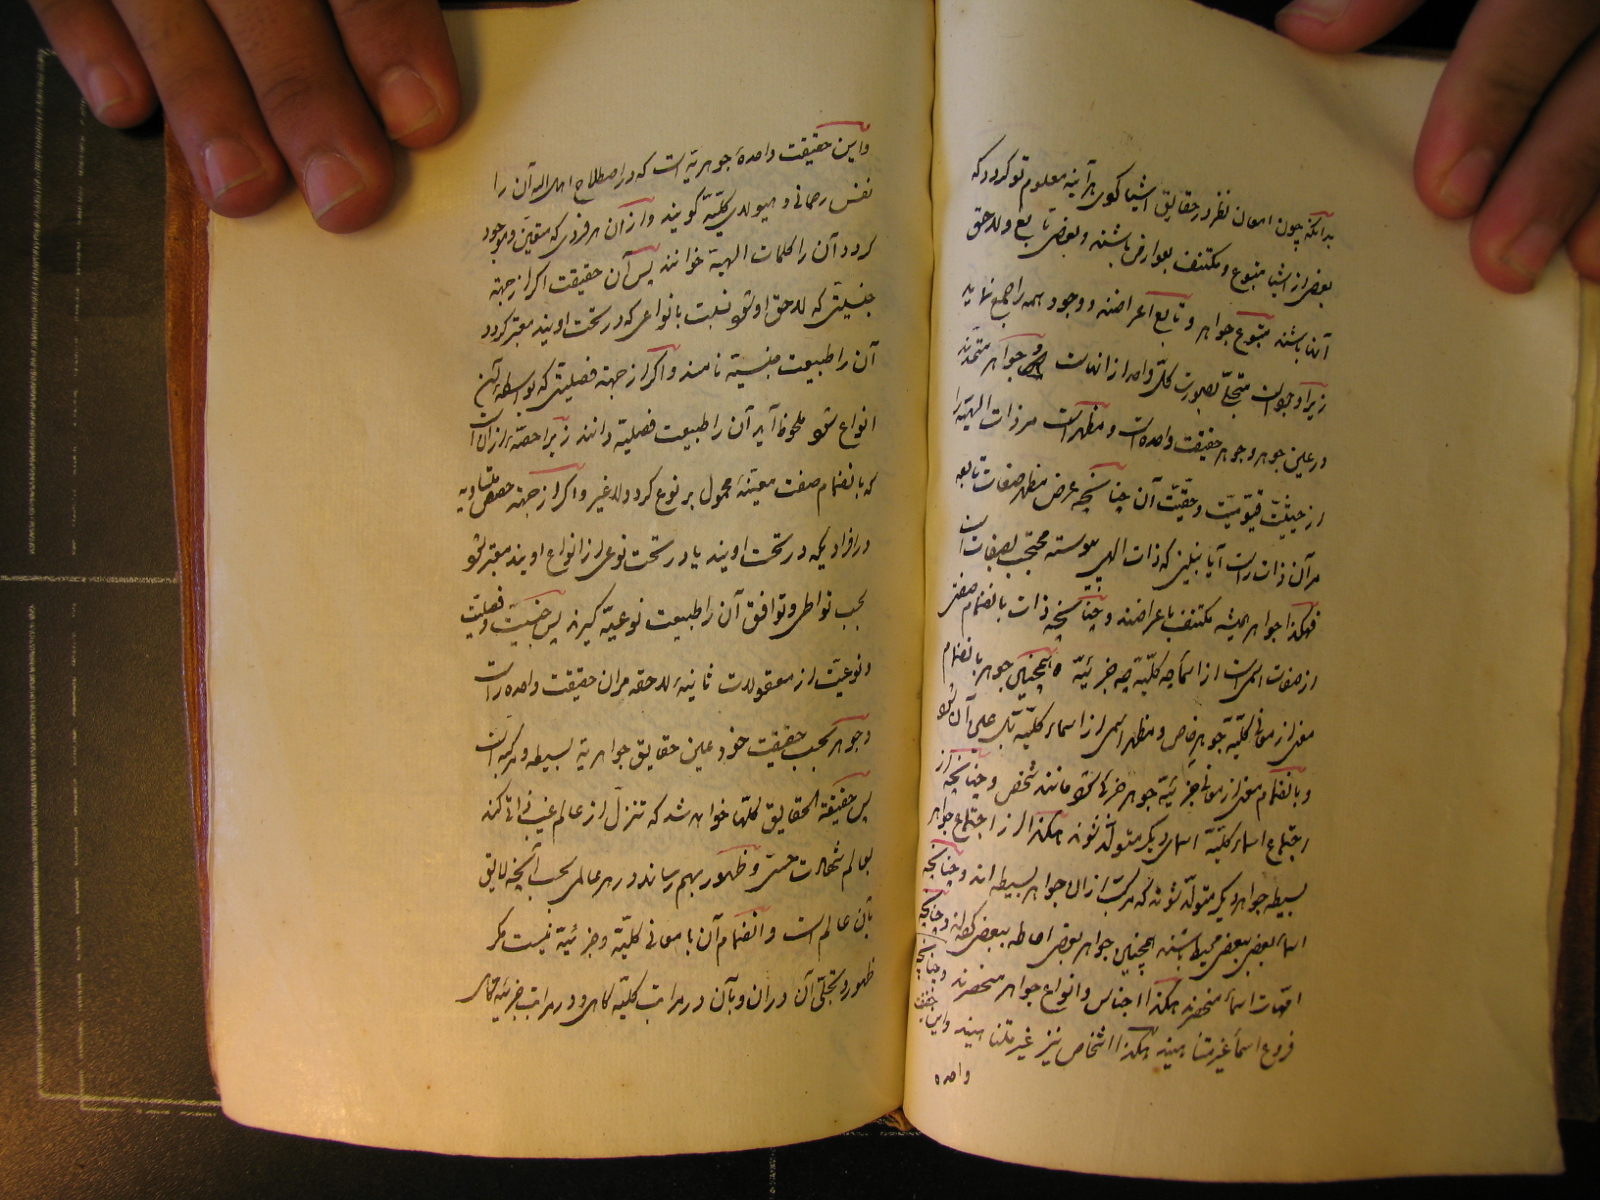 بدانکه چون امعان نظر در حقایق اشیا کوی هرآینه معلوم تو کردد که
بعض از اشیا متبوع و مکتنف بعوارض باشند و بعض تابع و لاحق
آنها باشند متبوع جواهر و تابع اعراضند و وجود همه را جمع نماید
زیرا وجود است متجلّی بصورت کل واحد از انها است و جواهر متحدند
در عین جوهر و جوهر حقیقت واحده است و مظهر است مر ذات الهیّه را
از حیثیّت قیّومیّت و حقّیّت آن چنانچه عرض مظهر صفات تابعه
مر آن ذات راست آیا نبینی که ذات الهی پیوسته محتجب بصفات است
فهکذا جواهر همیشه مکتنف باعراضند و چنانچه ذات بانضمام صفتی
از صفات اسمی است از اسما چه کلیّه چه جزئیّه همچنین جوهر بانضمام
معنی از معانی کلیّه جوهر خاص و مظهر اسمی از اسماء کلیّه بل عین آن شود
و بانضمام معنی از معانی جزئیّه جوهر جزئی شود مانند شخص و چنانچه از
اجتماع اسماء کلیّه اسمای دیکر متولّد شوند هکذا از اجتماع جواهر
بسیطه جواهر دیکر متولّد شوند که مرکّب ازان جواهر بسیطه اند و چنانچه
اسماء بعضی ببعض محیط باشند همچنین جواهر بعضی احاطه ببعض کند و چنانچه
امّهات اسماء منحصرند هکذا اجناس و انواع جواهر منحصرند و چنانچه
فروع اسما غیر متناهیند هکذا اشخاص نیز غیر متناهیند و این حقیقت
واحده
و این حقیقت واحده جوهریّه است که در اصطلاح اهل الله آن را
نفس رحمانی و هیولای کلیّه کویند و از آن هر فردی که متعیّن و موجود
کردد آن را کلمات الهیّه خوانند پس آن حقیقت اکر از جهة
جنسیّتی که لاحق او شود نسبت بانواعی که در تحت اویند معتبر کردد
آن را طبیعت جنسیّة نامند و اکر از جهة فصلیّتی که بواسطه آن
انواع شود ملحوظ آید آن را طبیعت فصلیّه دانند زیرا حصّه ازان است
که بانضمام صفت معیّنه محمول بر نوع کردد لا غیر و اکر از جهة حصص متساویه
در افرادیکه در تحت اویند یا در تحت نوعی از انواع اویند معتبر شود
بحسب تواطی و توافق آن را طبیعت نوعیّه کیرند پس جنسیّت و فصلیّت
و نوعیّت از معقولات ثانیهٔ لاحقه مران حقیقت واحده راست
و جوهر بحسب حقیقت خود عین حقایق جواهریّه بسیطه و مرکّبه است
پس حقیقة الحقایق کلّها خواهد شد که تنزل از عالم غیب ذاتی کند
بعالم شهادت حسی و ظهور بهم رساند در هر عالمی بحسب آنچه لایق
بآن عالم است و انضمام آن با معانی کلیّه و جزئیّه نیست مکر
ظهور و تجلّی آن دران و بآن در مراتب کلیّه کاهی و در مراتب جزئیّه کاهی